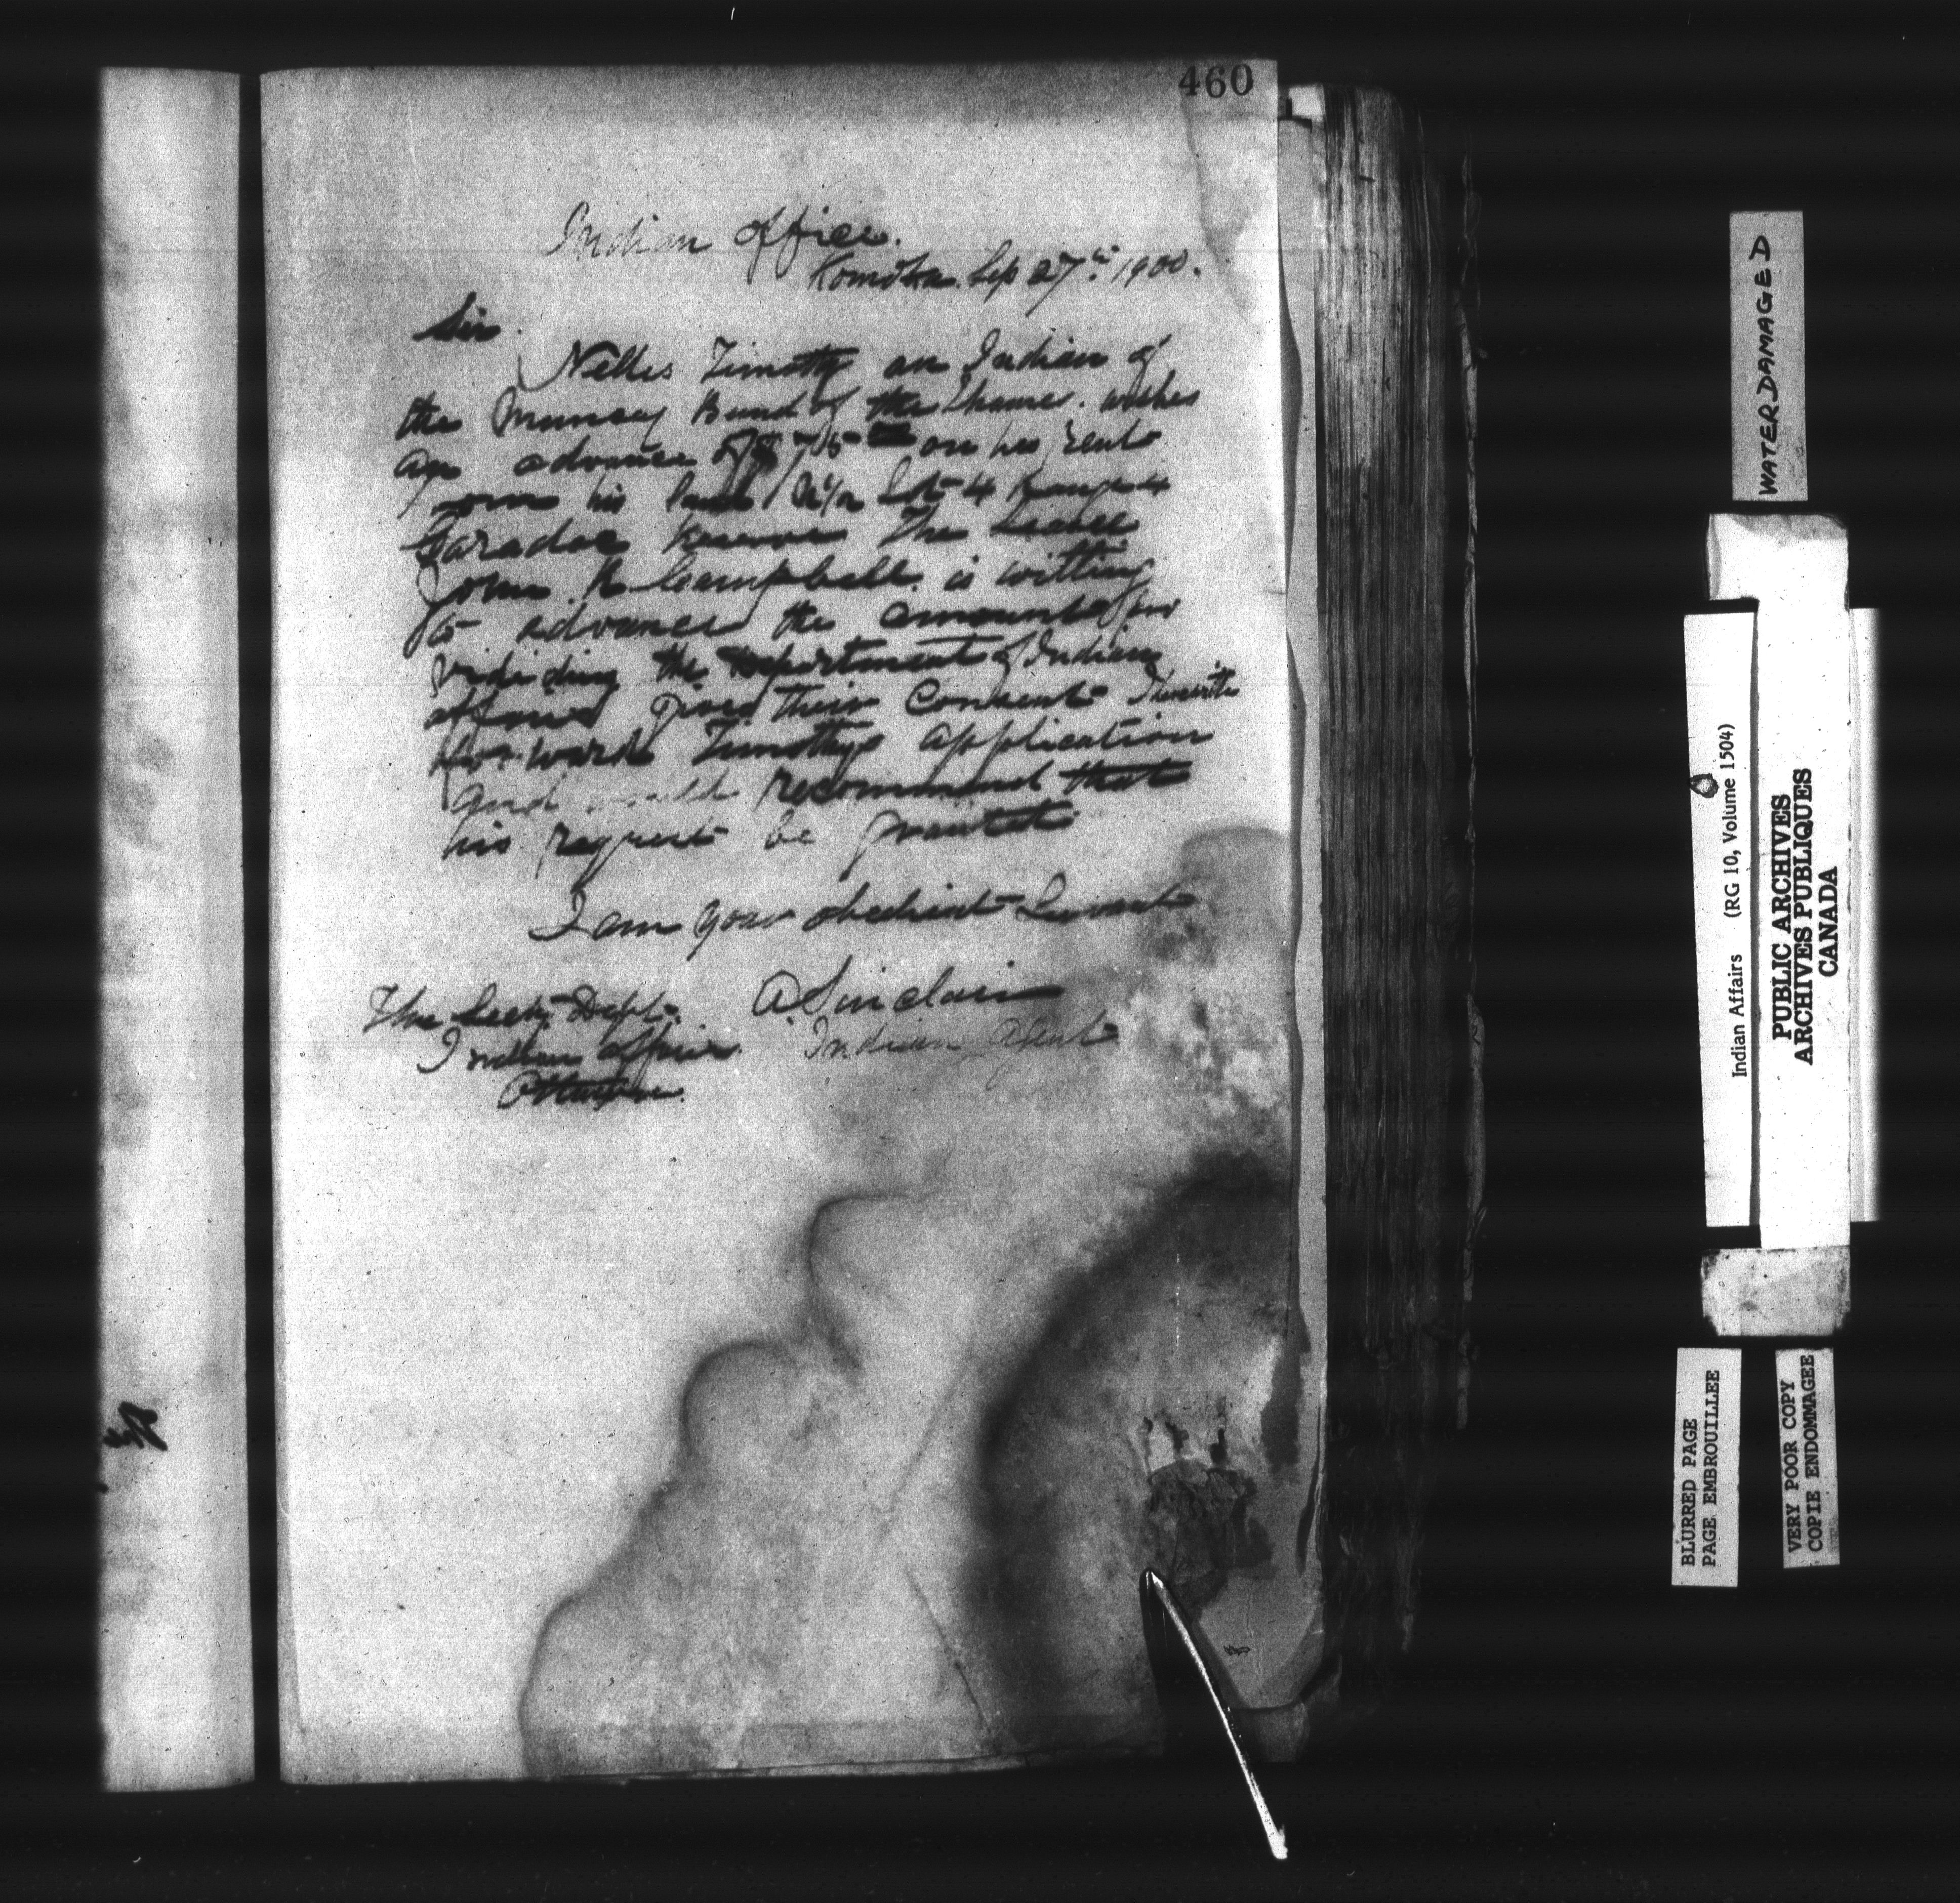 460
Indian Office.
Komoka Sep 27th 1900.
Sir
Nelles Timothy an Indian of
the Muncey Band of the Thames. wishes
an advance of $75 on his rent
from his land Lot 4 Range 4
Caradoc Reserve The Lessee
John R Campbell is willing
to advance the amount pro
viding the Department of Indian
affairs gives their Consent I herewith
forward Timothys application
and would recommend that
his request be granted
I am your obedient Servant
A. Sinclair
Indian Agent
The Secty Dept.
Indian affairs.
Ottawa.
WATER DAMAGED
Indian Affairs (RG 10, Volume 1504)
PUBLIC ARCHIVES
ARCHIVES PUBLIQUES
CANADA
BLURRED PAGE
PAGE EMBROUILLEE
VERY POOR COPY
COPIE ENDOMMAGEE